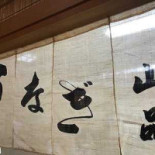 うなぎ
山